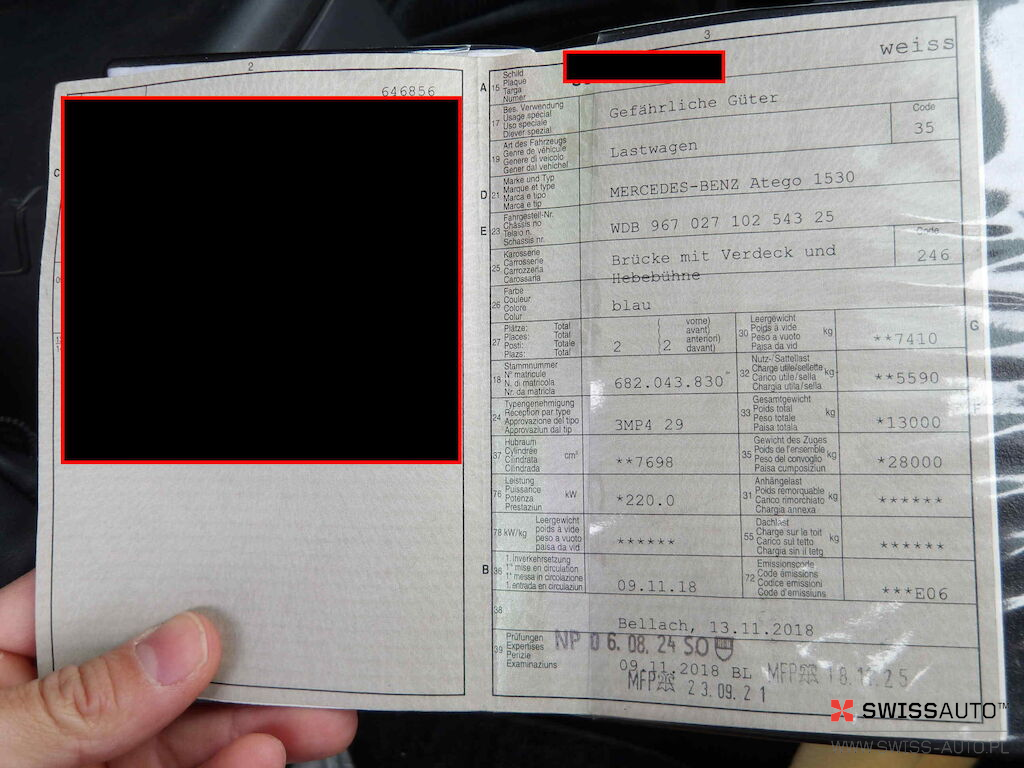 2
646856
C
3
weiss
A 15 Schild
Plaque
Targa
Numer
17 Bes. Verwendung
Usage spécial
Uso speciale
Diever spezial
Gefährliche Güter
19 Art des Fahrzeugs
Genre de véhicule
Genere di veicolo
Gener dal vehichel
Lastwagen
Code
35
D 21 Marke und Typ
Marque et type
Marca e tipo
Marca e tip
MERCEDES-BENZ Atego 1530
E 23 Fahrgestell-Nr.
Châssis no
Telaio n.
Schassis nr.
WDB 967 027 102 543 25
25 Karosserie
Carrosserie
Carrozzeria
Carossaria
Brücke mit Verdeck und
Hebebühne
Code
246
26 Farbe
Couleur
Colore
Colur
blau
27 Plätze: Total
Places: Total
Posti: Totale
Plazs: Total
2
(2
vorne)
avant)
anteriori)
davant)
30 Leergewicht
Poids à vide
Peso a vuoto
Paisa da vid
kg
**7410
G
18 Stammnummer
N° matricule
N. di matricola
Nr. da matricla
682.043.830
32 Nutz-/Sattellast
Charge utile/sellette
Carico utile/sella
Chargia utila/sella
kg
**5590
24 Typengenehmigung
Réception par type
Approvazione del tipo
Approvaziun dal tip
3MP4 29
33 Gesamtgewicht
Poids total
Peso totale
Paisa totala
kg
*13000
F
37 Hubraum
Cylindrée
Cilindrata
Cilindrada
cm³
**7698
35 Gewicht des Zuges
Poids de l'ensemble
Peso del convoglio
Paisa cumposiziun
kg
*28000
76 Leistung
Puissance
Potenza
Prestaziun
kW
*220.0
31 Anhängelast
Poids remorquable
Carico rimorchiato
Chargia annexa
kg
******
78 kW/kg Leergewicht
poids à vide
peso a vuoto
paisa da vid
******
55 Dachlast
Charge sur le toit
Carico sul tetto
Chargia sin il tetg
kg
******
B 36 1. Inverkehrsetzung
1re mise en circulation
1a messa in circolazione
1. entrada en circulaziun
09.11.18
72 Emissionscode
Code émissions
Codice emissioni
Code d'emissiuns
***E06
38
Bellach, 13.11.2018
39 Prüfungen
Expertises
Perizie
Examinaziuns
NP 06.08.24 SO
09.11.2018 BL
MFP 18.11.25
MFP 23.09.21
SWISSAUTO™
WWW.SWISS-AUTO.PL